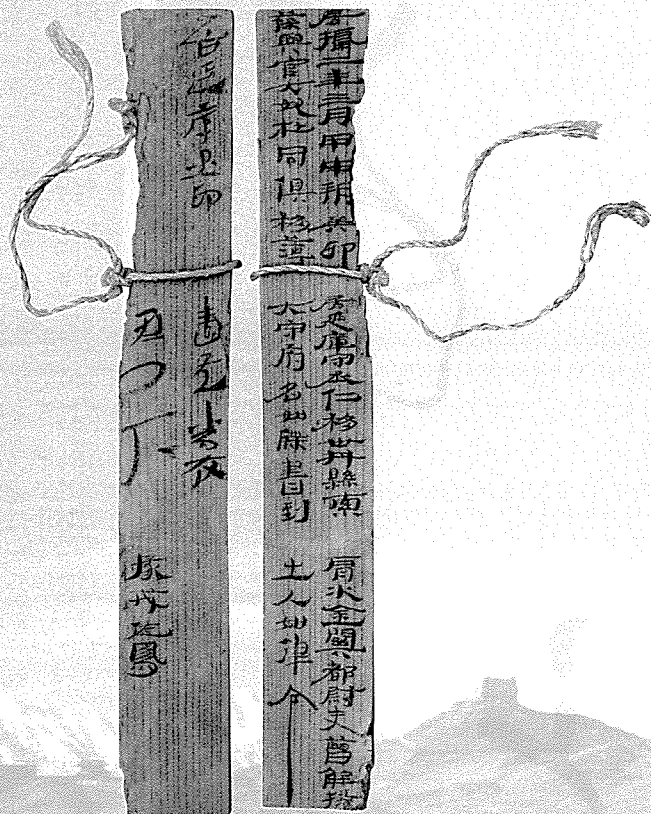 居攝二年三月甲申朔癸卯居延庫守丞仁移卅井縣索肩水金關都尉史曹解掾
葆與官大奴杜同俱移簿大守府名如牒書到出入如律令
居延庫丞印 嗇夫當發
君門下 掾戎佐鳳